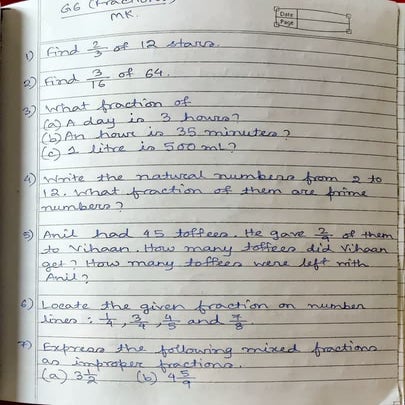 G6 (Fractions)
MK.
Date
Page
1) Find 2/3 of 12 stars.
2) Find 3/16 of 64.
3) What fraction of
(a) A day is 3 hours?
(b) An hour is 35 minutes?
(c) 1 litre is 500 mL?
4) Write the natural numbers from 2 to
12. What fraction of them are prime
numbers?
5) Anil had 45 toffees. He gave 2/9 of them
to Vihaan. How many toffees did Vihaan
get? How many toffees were left with
Anil?
6) Locate the given fraction on number
lines: 1/4, 3/4, 4/5 and 7/8.
7) Express the following mixed fractions
as improper fractions.
(a) 3 1/2 (b) 4 5/9